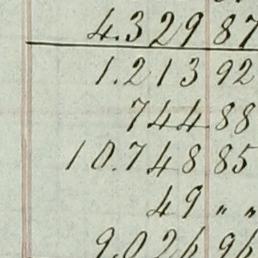 4.329 87
1.213 92
744 88
10.748 85
49 " "
9.026 96